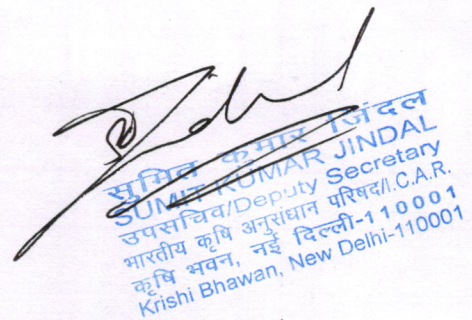 सुमित कुमार जिंदल
SUMIT KUMAR JINDAL
उपसचिव/Deputy Secretary
भारतीय कृषि अनुसंधान परिषद/I.C.A.R.
कृषि भवन, नई दिल्ली-110001
Krishi Bhawan, New Delhi-110001